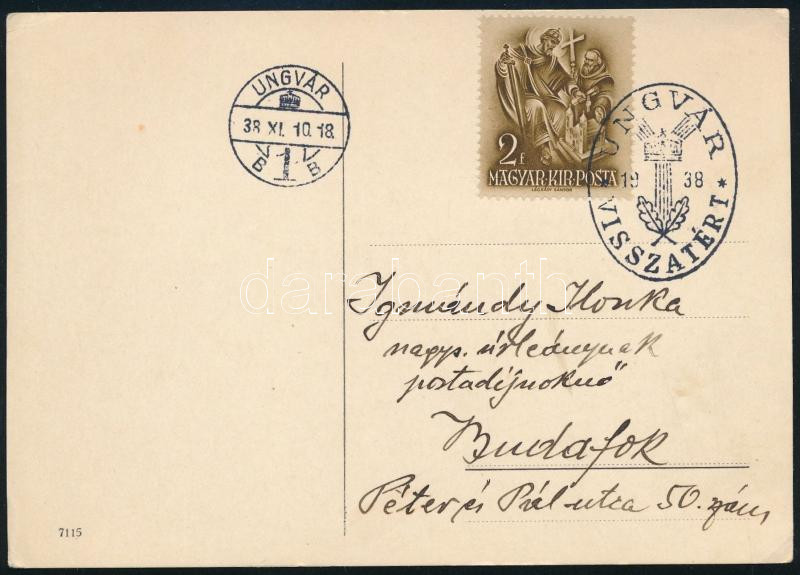 UNGVÁR
38 XI. 10. 18
V V
B 1 B
2 f
MAGYAR·KIR·POSTA
LÉGRÁDY SÁNDOR
UNGVÁR
19 38
* VISSZATÉRT *
darabanth
Igmándy Ilonka
nagys. úrleánynak
postadíjnoknő
Budafok
Péter és Pál-utca 50. szám
7115